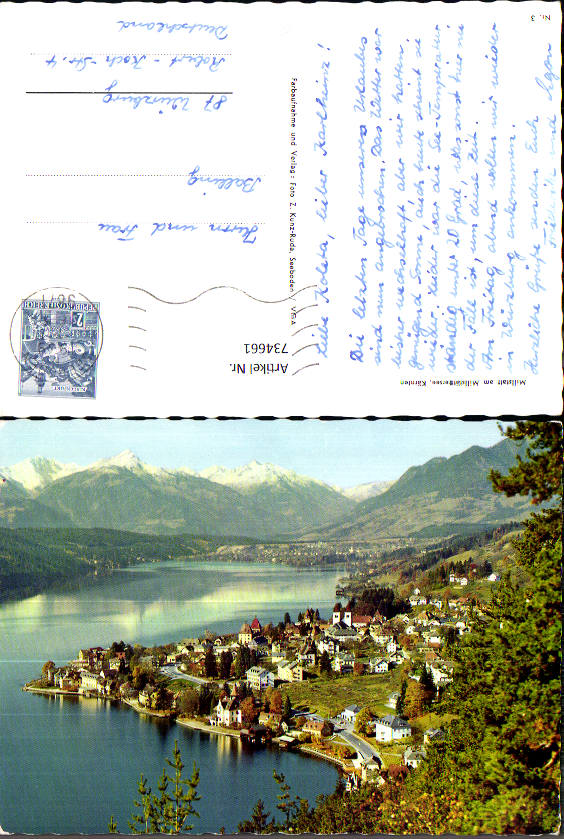 Nr. 3
Liebe Koleta, lieber Karlheinz!
Die letzten Tage unseres Urlaubes
sind nun angebrochen. Das Wetter war
bisher wechselhaft, aber wir hatten
genügend Sonne, auch heute scheint sie
wieder. Leider war die See-Temperatur
ständig unter 20 Grad, was sonst hier nie
der Fall ist, um diese Zeit.
Am Freitag abend wollen wir wieder
in Würzburg ankommen.
Herzliche Grüße senden Euch
und
Millstatt am Millstättersee, Kärnten
Farbaufnahme und Verlag: Foto Z. Kunz-Ruda, Seeboden / VEA
Artikel Nr.
734661
REPUBLIK ÖSTERREICH
2
KLAGENFURT
Herrn und Frau
Balling
87 Würzburg
Robert-Koch-Str. 4
Deutschland